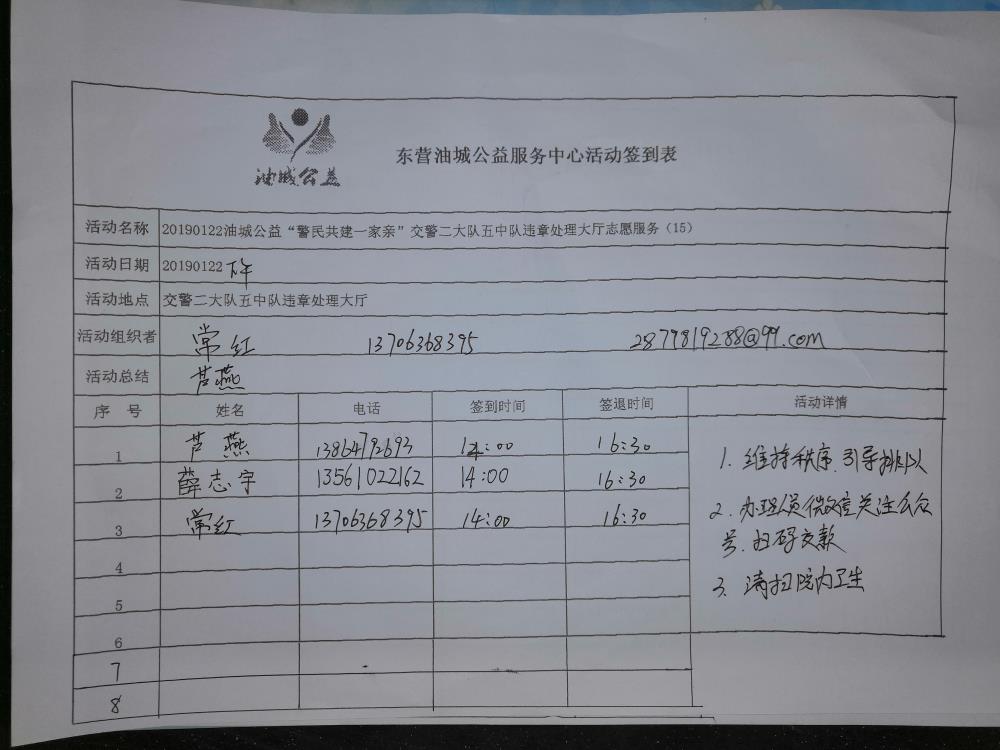 油城公益
东营油城公益服务中心活动签到表
活动名称 20190122油城公益“警民共建一家亲”交警二大队五中队违章处理大厅志愿服务（15）
活动日期 20190122 下午
活动地点 交警二大队五中队违章处理大厅
活动组织者 常红 13706368395 2879819288@qq.com
活动总结 芦燕
序号 姓名 电话 签到时间 签退时间 活动详情
1 芦燕 13864792693 14:00 16:30
2 薛志宇 13561022162 14:00 16:30
3 常红 13706368395 14:00 16:30
4
5
6
7
8
1. 维持秩序.引导排队
2. 办理人员微信关注公众
号.扫码交款
3. 清扫院内卫生